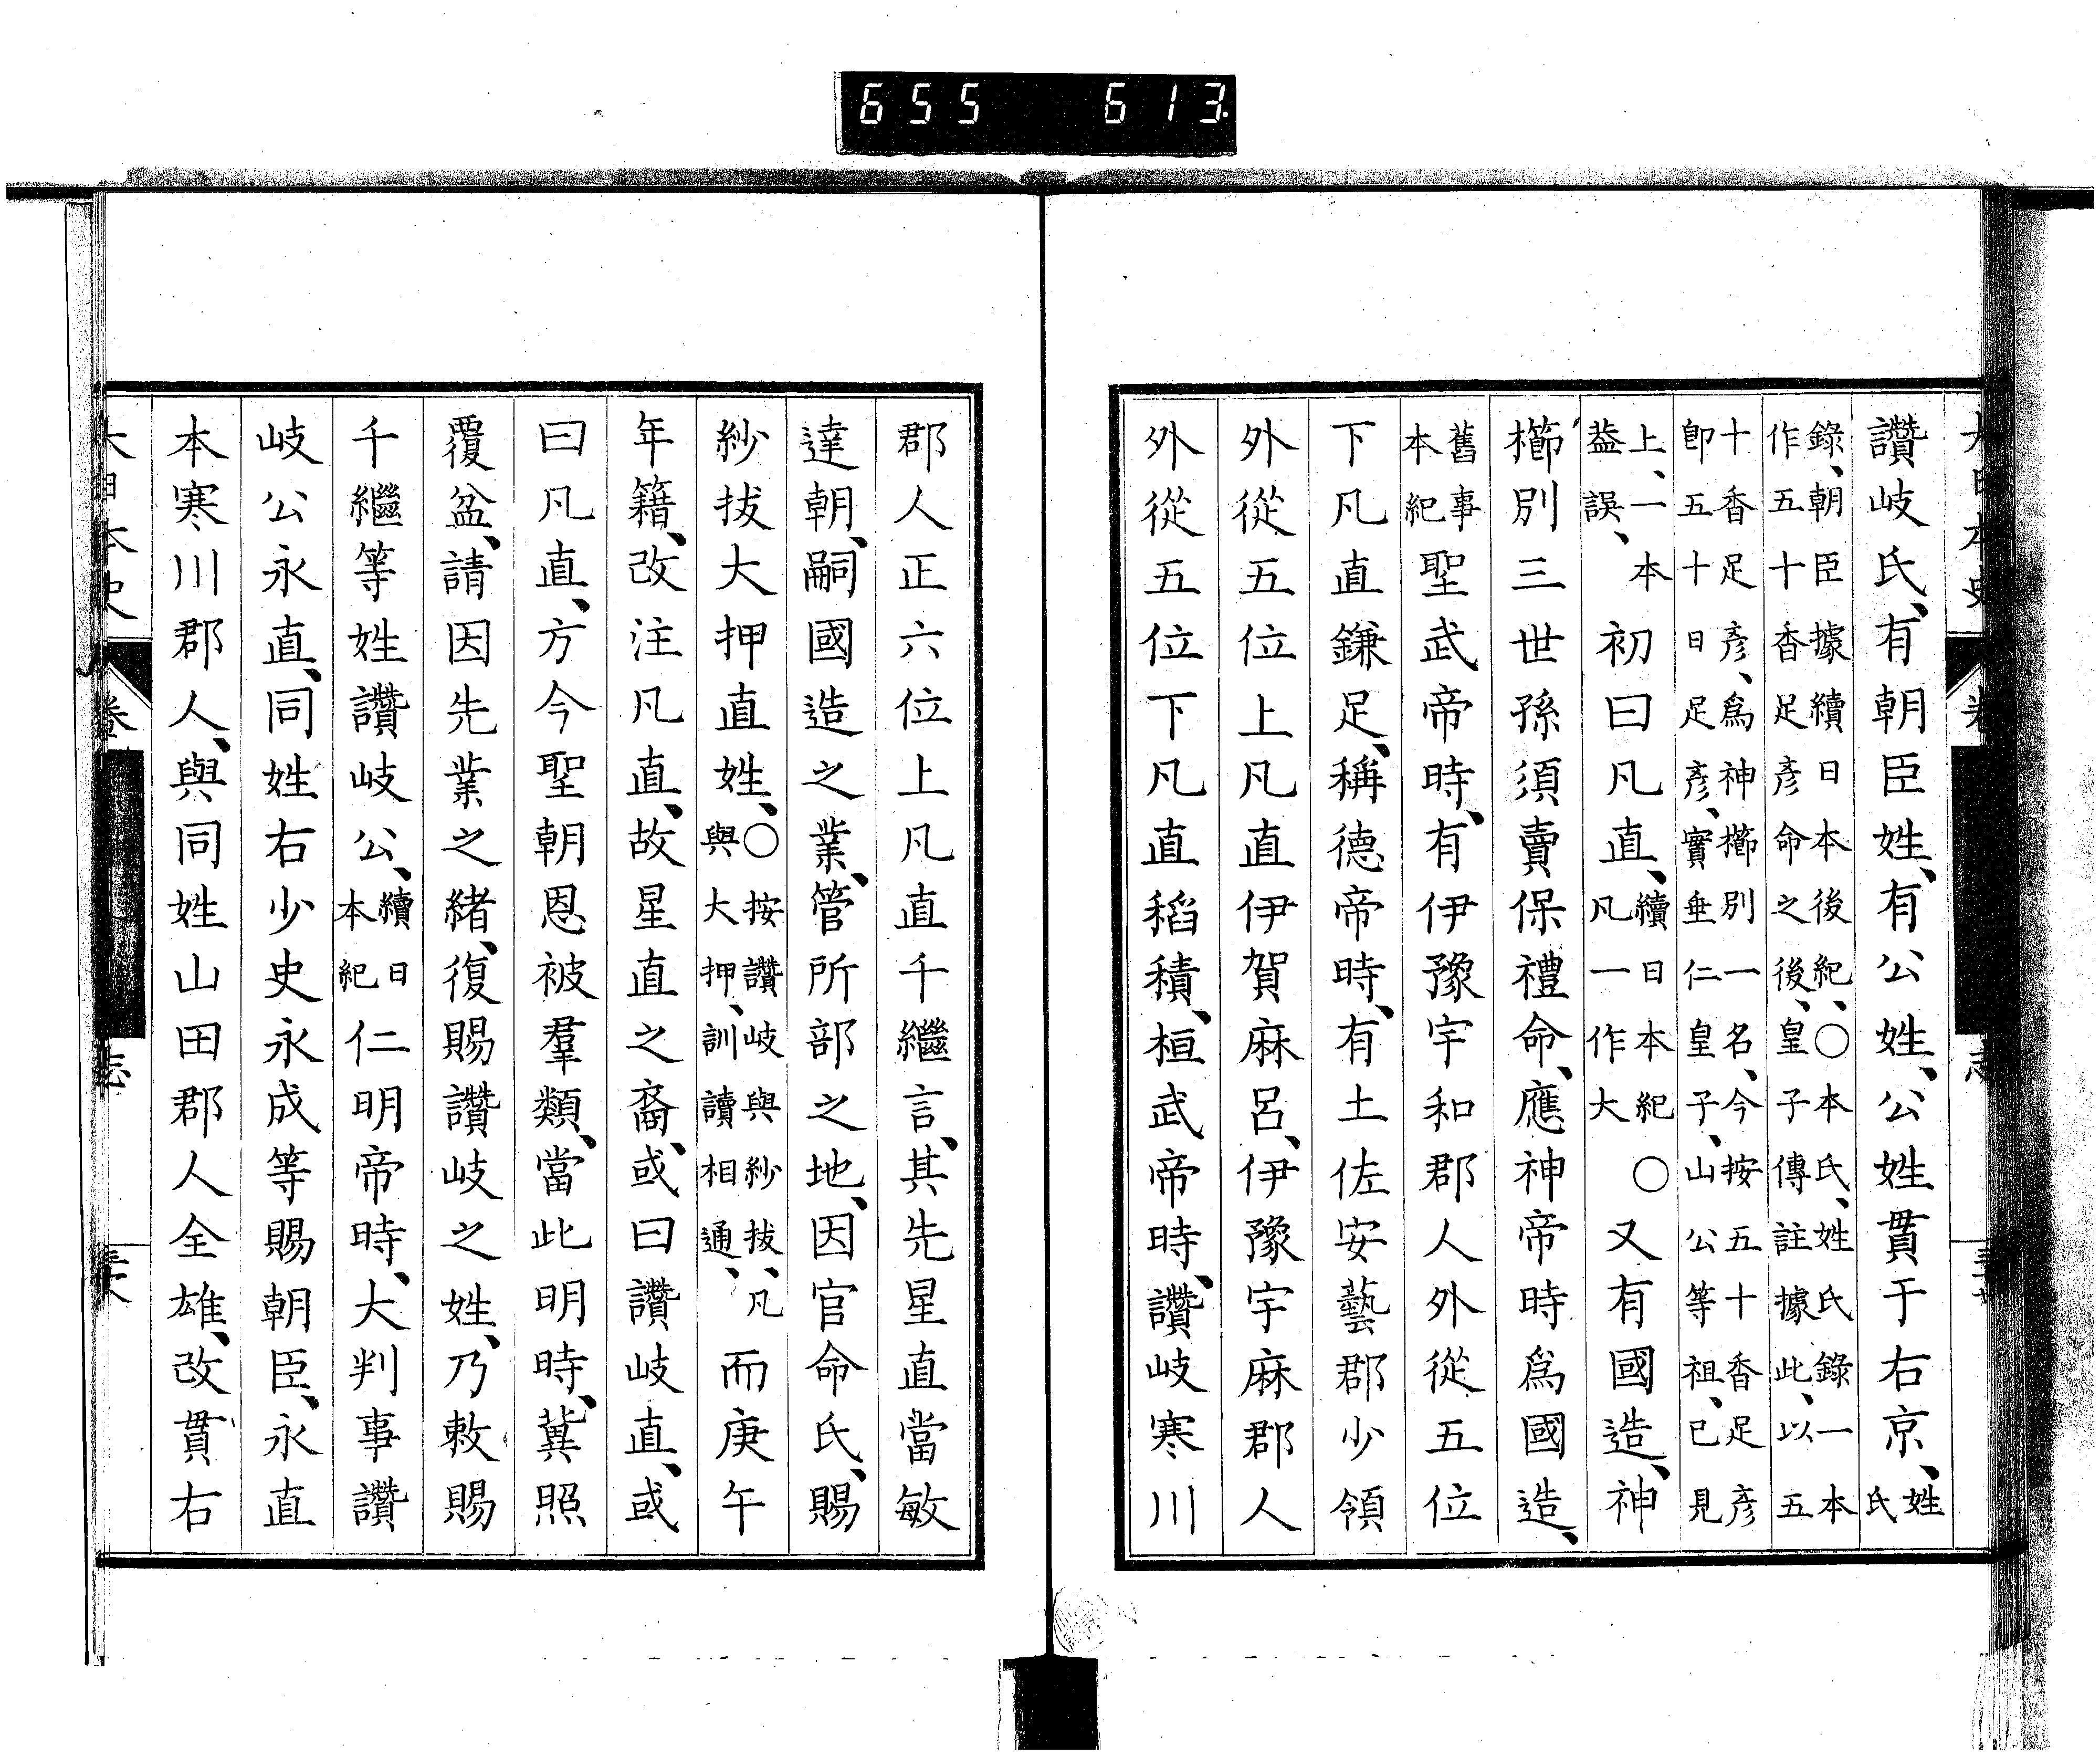 655 613
讚岐氏、有朝臣姓、有公姓、公姓貫于右京、姓氏
錄、朝臣據續日本後紀、○本氏、姓氏錄一本
作五十香足彥命之後、皇子傳註據此、以五
十香足彥、爲神櫛別一名、今按五十香足彥
卽五十日足彥、實垂仁皇子、山公等祖、已見
上、一本
蓋誤、
初曰凡直、續日本紀○
凡一作大
又有國造、神
櫛別三世孫須賣保禮命、應神帝時爲國造、
舊事
本紀
聖武帝時、有伊豫宇和郡人外從五位
下凡直鎌足、稱德帝時、有土佐安藝郡少領
外從五位上凡直伊賀麻呂、伊豫宇麻郡人
外從五位下凡直稻積、桓武帝時、讚岐寒川
郡人正六位上凡直千繼言、其先星直當敏
達朝、嗣國造之業、管所部之地、因官命氏、賜
紗拔大押直姓、○按讚岐與紗拔、凡
與大押、訓讀相通、
而庚午
年籍、改注凡直、故星直之裔、或曰讚岐直、或
曰凡直、方今聖朝恩被羣類、當此明時、冀照
覆盆、請因先業之緒、復賜讚岐之姓、乃敕賜
千繼等姓讚岐公、續日
本紀
仁明帝時、大判事讚
岐公永直、同姓右少史永成等賜朝臣、永直
本寒川郡人、與同姓山田郡人全雄、改貫右
大日本史
卷
志